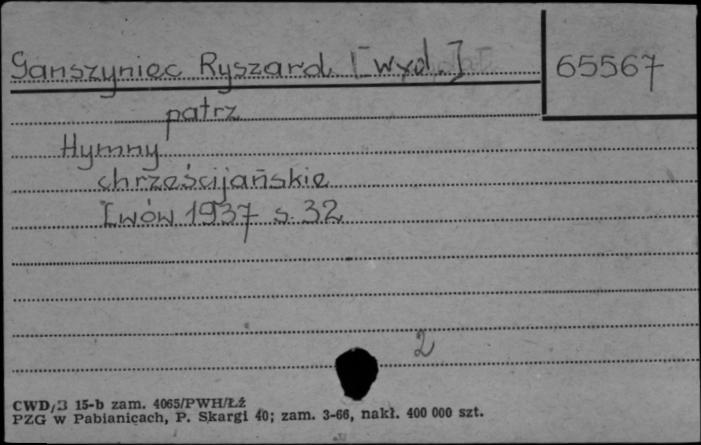 Ganszyniec Ryszard [wyd.]
65567
patrz
Hymny
chrześcijańskie
Lwów 1937 s. 32
2
CWD/3 15-b zam. 4065/PWH/Łź
PZG w Pabianicach, P. Skargi 40; zam. 3-66, nakł. 400 000 szt.